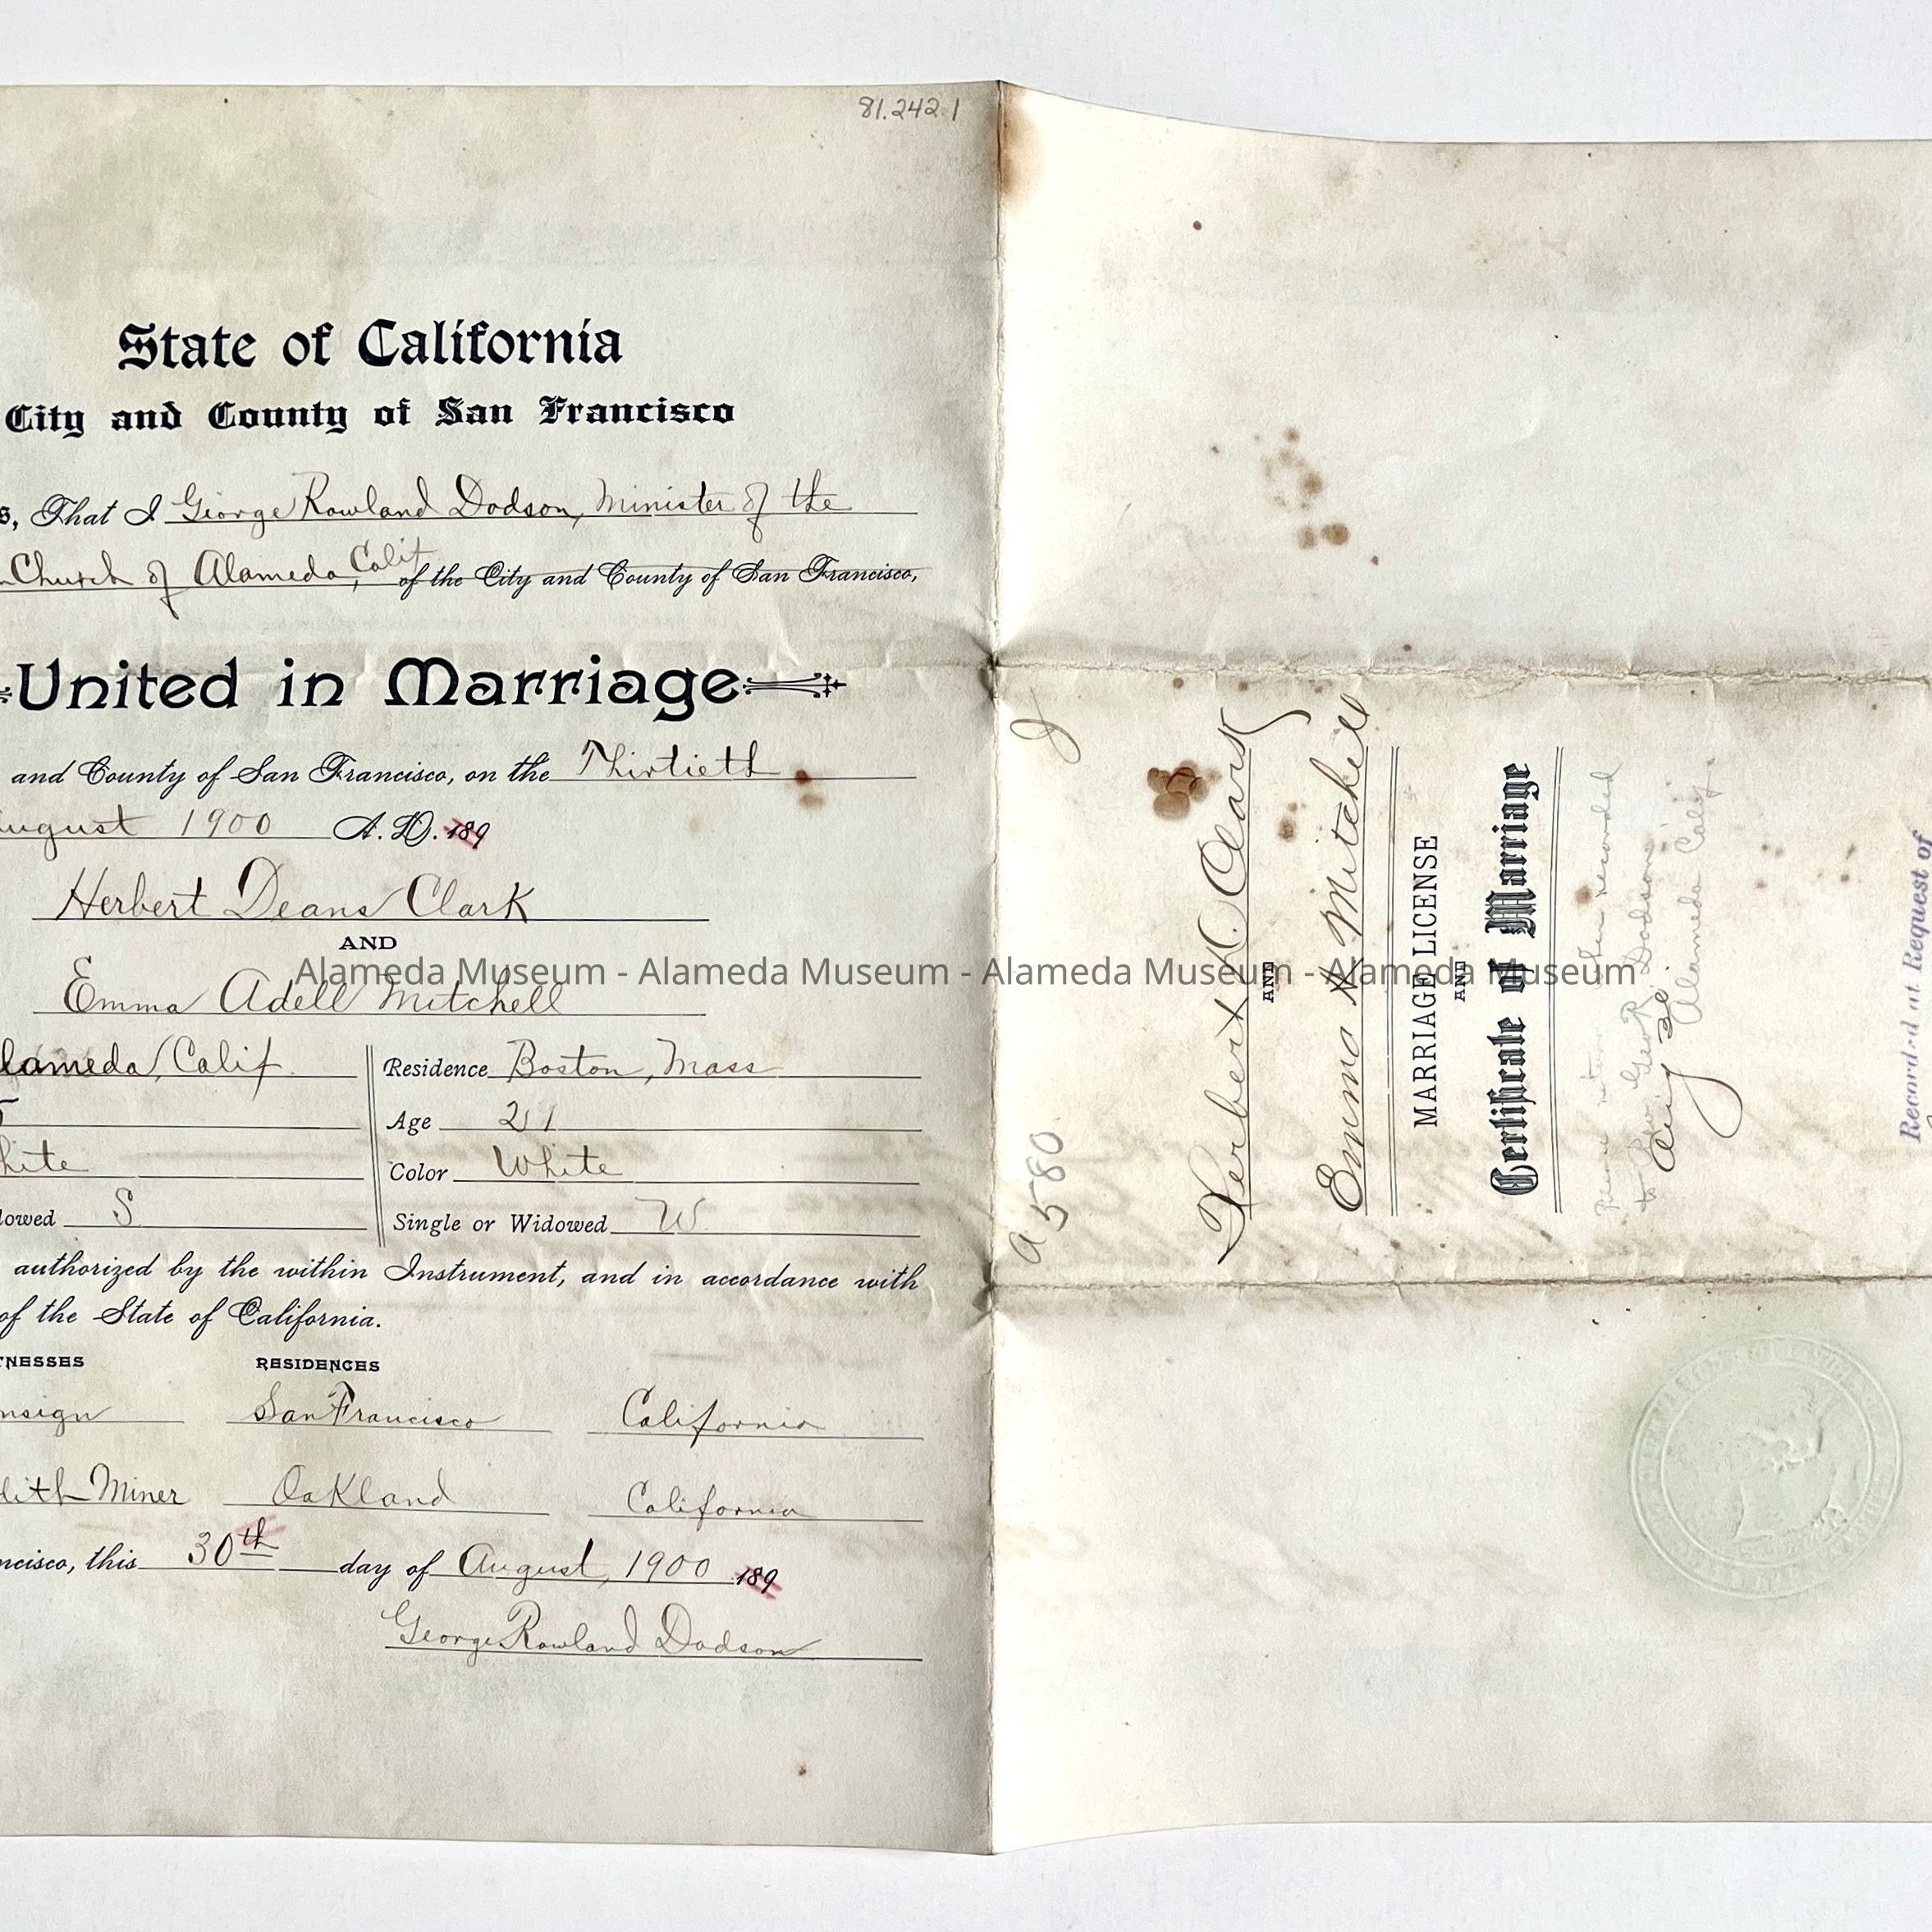 81.242.1
State of California
City and County of San Francisco
s, That I George Rowland Dodson, Minister of the
Church of Alameda, Calif of the City and County of San Francisco,
United in Marriage
and County of San Francisco, on the Thirtieth
ugust 1900 A. D. 189
Herbert Deans Clark
AND
Emma Adell Mitchell
lameda, Calif.
Residence Boston, Mass
Age 21
hite
Color White
lowed S
Single or Widowed W
authorized by the within Instrument, and in accordance with
of the State of California.
TNESSES RESIDENCES
nsign San Francisco California
dith Miner Oakland California
ncisco, this 30th day of August, 1900 189
George Rowland Dodson
a 580
Herbert D. Clark
AND
Emma A. Mitchell
MARRIAGE LICENSE
AND
Certificate of Marriage
return when recorded
to Rev. Geo R. Dodson
Alameda Calif.
Aug 30
Recorded at Request of
Alameda Museum - Alameda Museum - Alameda Museum - Alameda Museum